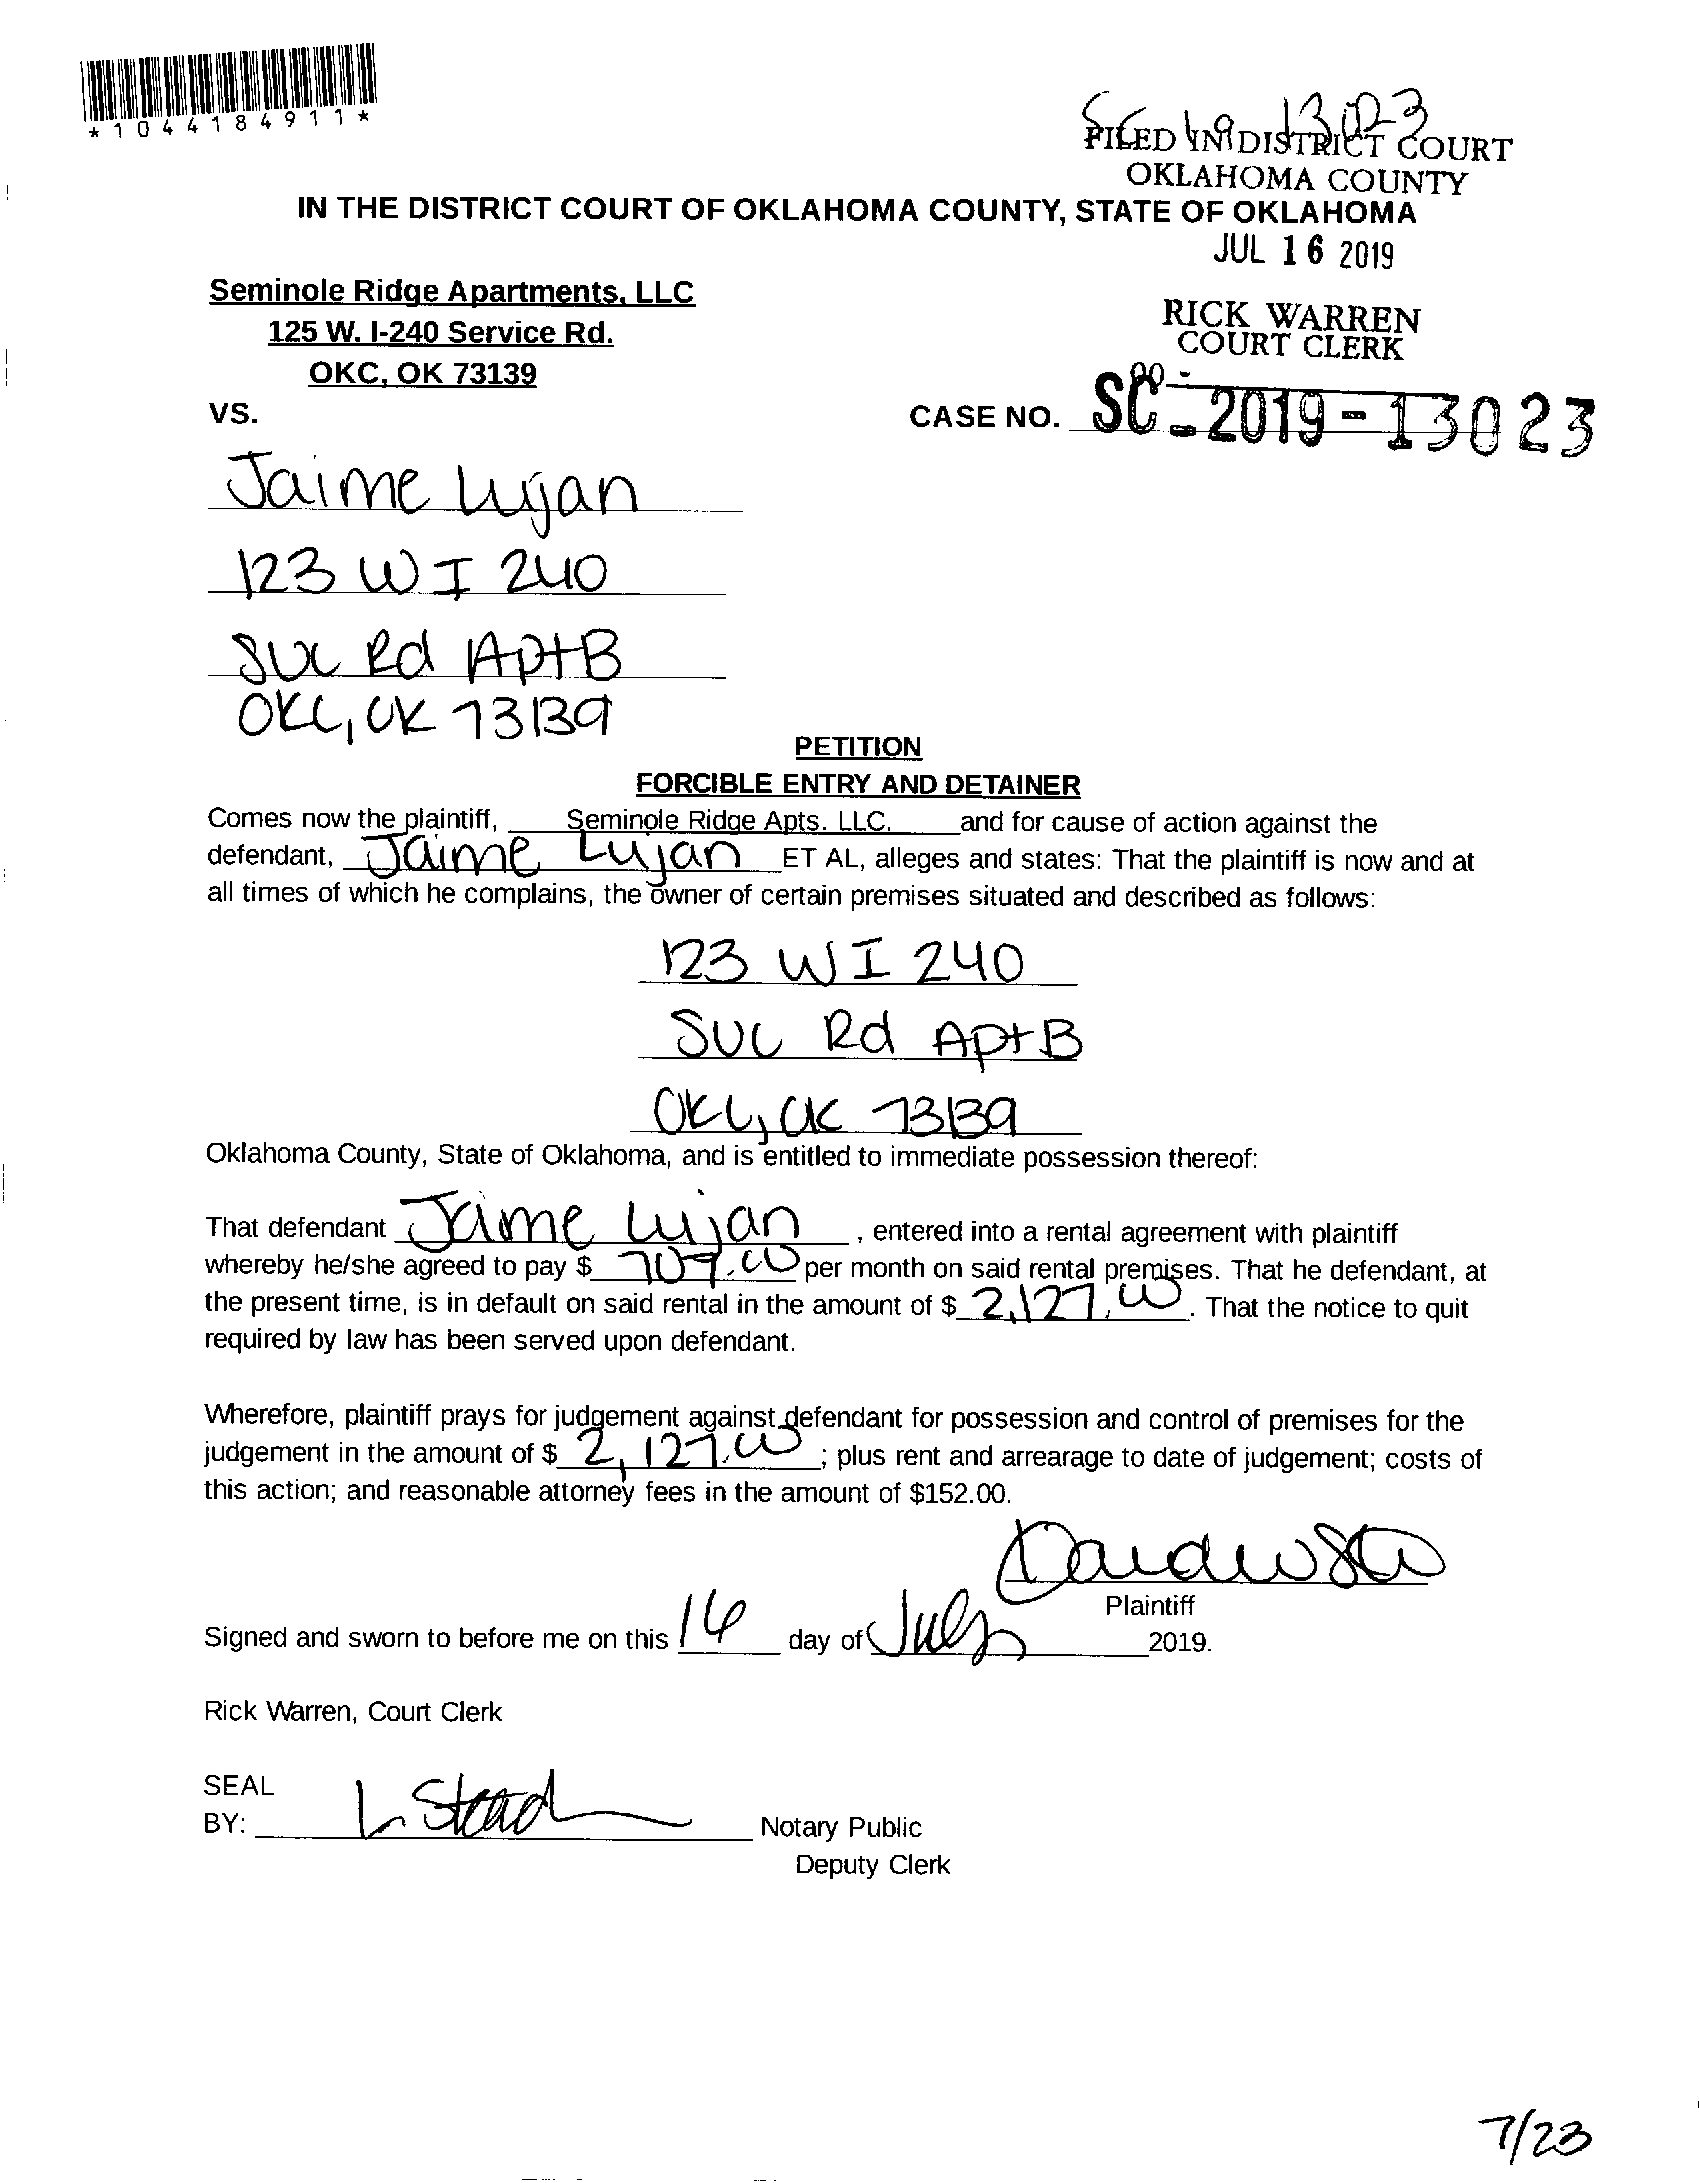 *1044184911*
SC 19 13023
FILED IN DISTRICT COURT
OKLAHOMA COUNTY
IN THE DISTRICT COURT OF OKLAHOMA COUNTY, STATE OF OKLAHOMA
JUL 16 2019
Seminole Ridge Apartments, LLC
125 W. I-240 Service Rd.
OKC, OK 73139
RICK WARREN
COURT CLERK
VS.
CASE NO. SC - 2019 - 13023
Jaime Lujan
123 W I 240
SVC Rd Apt B
OKC, OK 73139
PETITION
FORCIBLE ENTRY AND DETAINER
Comes now the plaintiff, Seminole Ridge Apts. LLC. and for cause of action against the
defendant, Jaime Lujan ET AL, alleges and states: That the plaintiff is now and at
all times of which he complains, the owner of certain premises situated and described as follows:
123 W I 240
SVC Rd Apt B
OKC, OK 73139
Oklahoma County, State of Oklahoma, and is entitled to immediate possession thereof:
That defendant Jaime Lujan , entered into a rental agreement with plaintiff
whereby he/she agreed to pay $ 709.00 per month on said rental premises. That he defendant, at
the present time, is in default on said rental in the amount of $ 2,127.00. That the notice to quit
required by law has been served upon defendant.
Wherefore, plaintiff prays for judgement against defendant for possession and control of premises for the
judgement in the amount of $ 2,127.00; plus rent and arrearage to date of judgement; costs of
this action; and reasonable attorney fees in the amount of $152.00.
Plaintiff
Signed and sworn to before me on this 16 day of July 2019.
Rick Warren, Court Clerk
SEAL
BY: Notary Public
Deputy Clerk
7/23